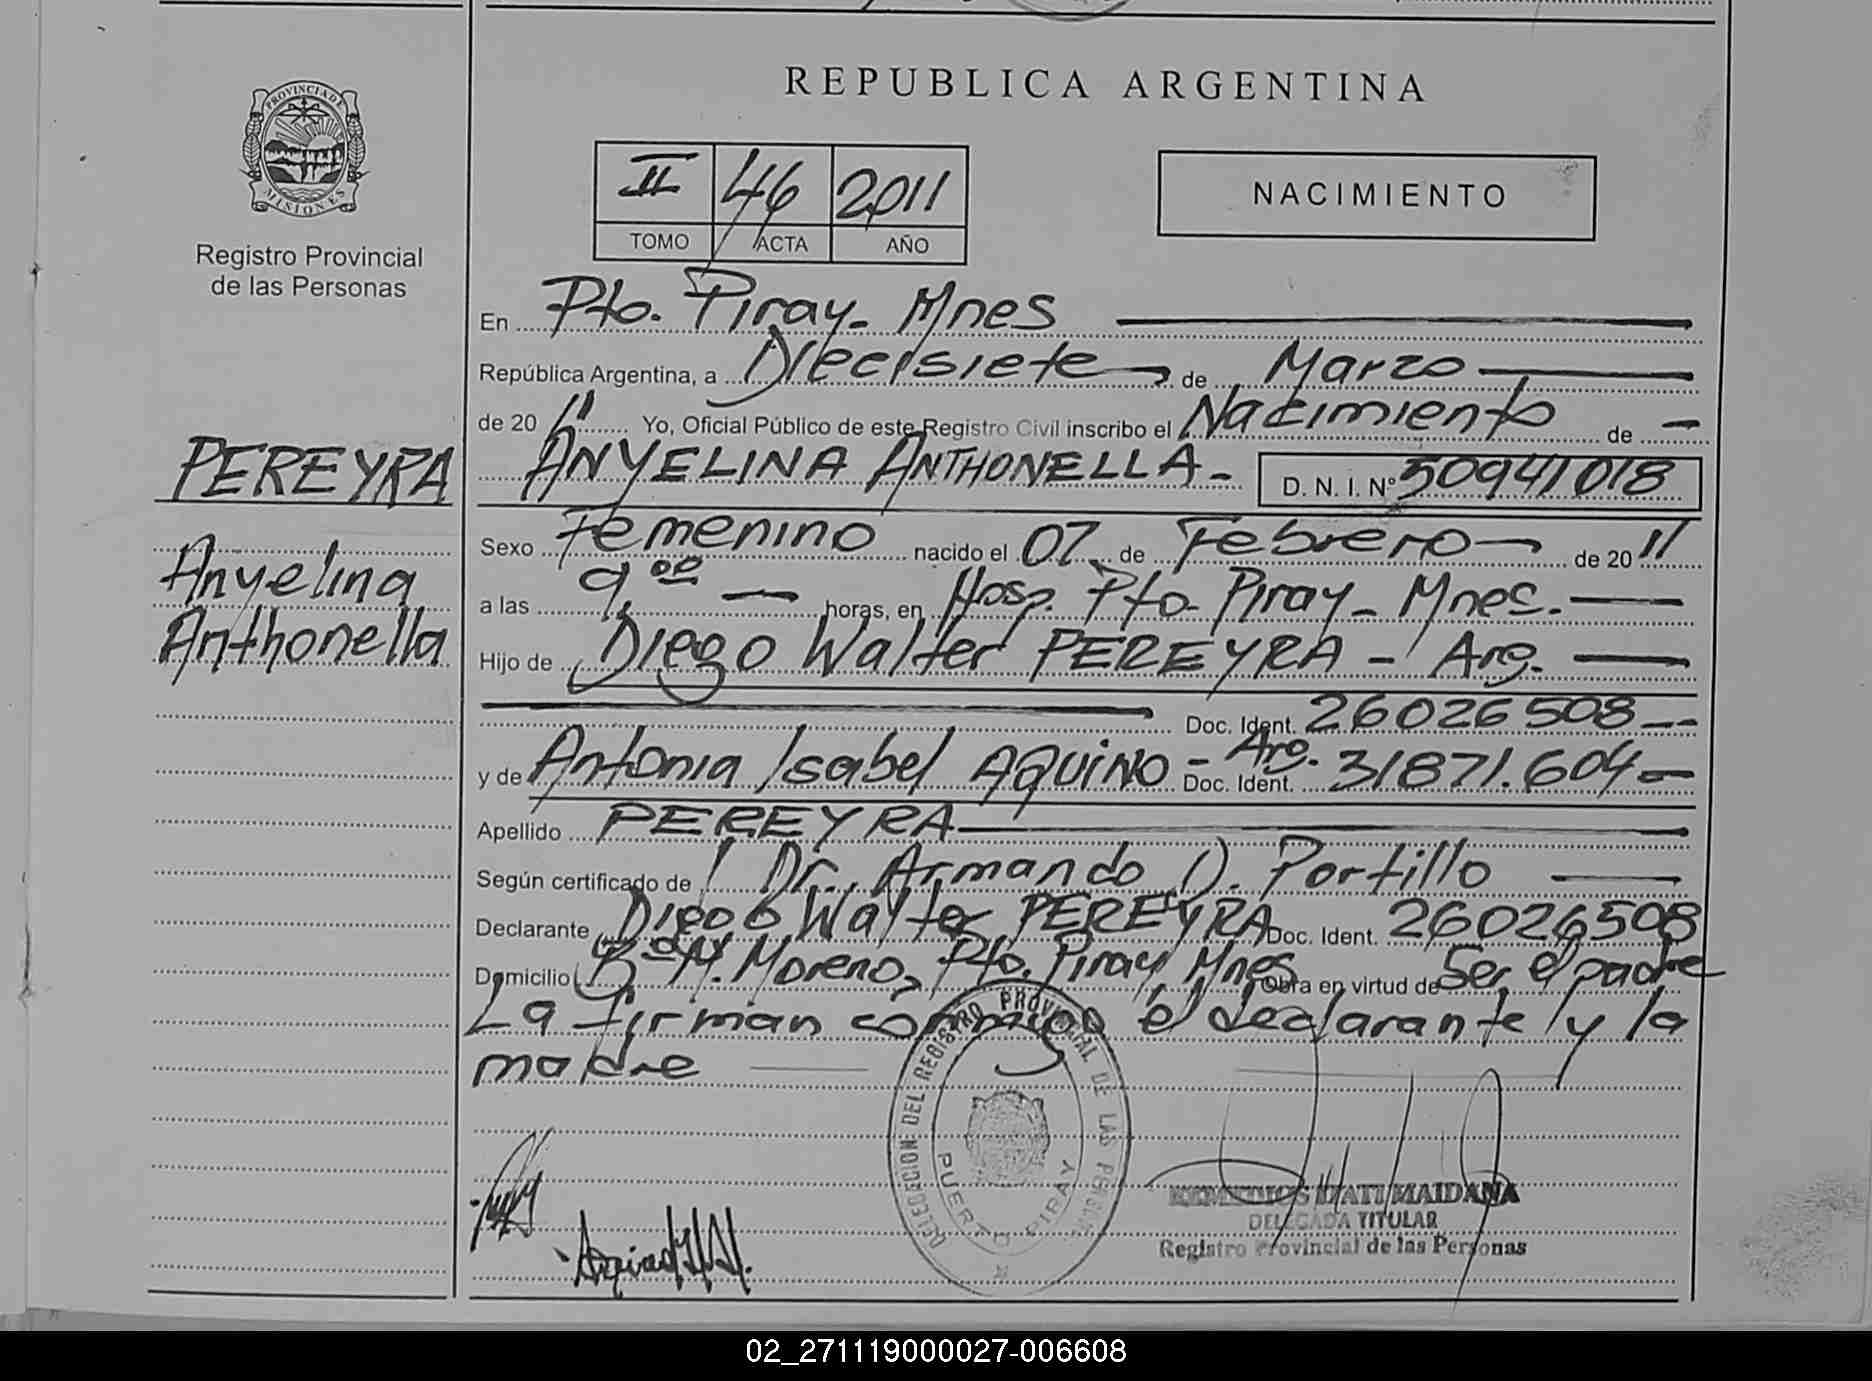 REPUBLICA ARGENTINA
PROVINCIA DE
MISIONES
Registro Provincial
de las Personas
II 46 2011
TOMO ACTA AÑO
NACIMIENTO
En Pto. Piray - Mnes
República Argentina, a Diecisiete de Marzo
de 20 11 Yo, Oficial Público de este Registro Civil inscribo el Nacimiento de
PEREYRA
Anyelina
Anthonella
ANYELINA ANTHONELLA - D. N. I. Nº 50941018
Sexo Femenino nacido el 07 de Febrero de 20 11
a las 9 ºº horas, en Hosp. Pto. Piray - Mnes.
Hijo de Diego Walter PEREYRA - Arg.
Doc. Ident. 26026508
y de Antonia Isabel AQUINO - Arg. Doc. Ident. 31871.604
Apellido PEREYRA
Según certificado de Dr. Armando O. Portillo
Declarante Diego Walter PEREYRA Doc. Ident. 26026508
Domicilio Bº M. Moreno, Pto. Piray Mnes Obra en virtud de Ser el padre
La firman conmigo el declarante y la
madre
DELEGACION DEL REGISTRO PROVINCIAL DE LAS PERSONAS
PUERTO PIRAY
REMEDIOS ITATI MAIDANA
DELEGADA TITULAR
Registro Provincial de las Personas
02_271119000027-006608